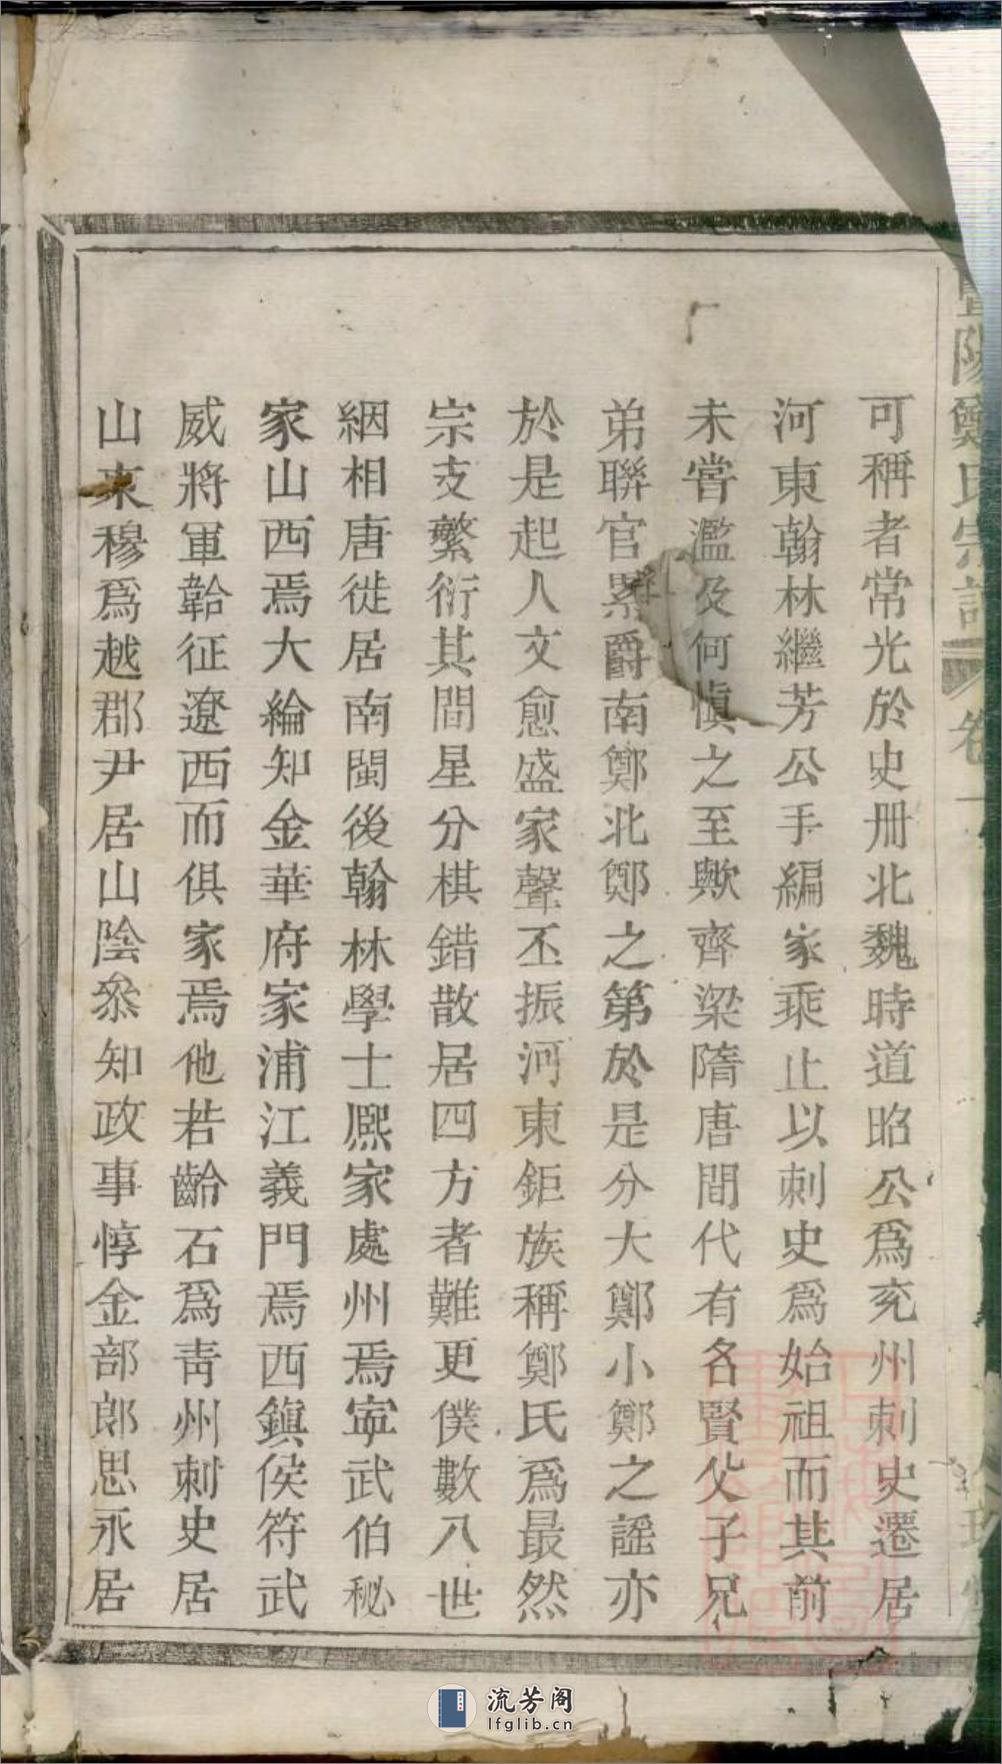 暨陽鄭氏宗譜 卷一
可稱者常光於史册北魏時道昭公爲兖州刺史遷居
河東翰林繼芳公手編家乘止以刺史爲始祖而其前
未嘗濫及何慎之至歟齊梁隋唐間代有名賢父子兄
弟聯官累爵南鄭北鄭之第於是分大鄭小鄭之謡亦
於是起人文愈盛家聲丕振河東鉅族稱鄭氏爲最然
宗支繁衍其間星分棋錯散居四方者難更僕數八世
絪相唐徙居南閩後翰林學士熈家處州焉寕武伯秘
家山西焉大綸知金華府家浦江義門焉西鎮侯符武
威將軍韐征遼西而俱家焉他若齡石爲靑州刺史居
山東穆爲越郡尹居山陰叅知政事惇金部郎思永居
流芳阁
lfglib.cn